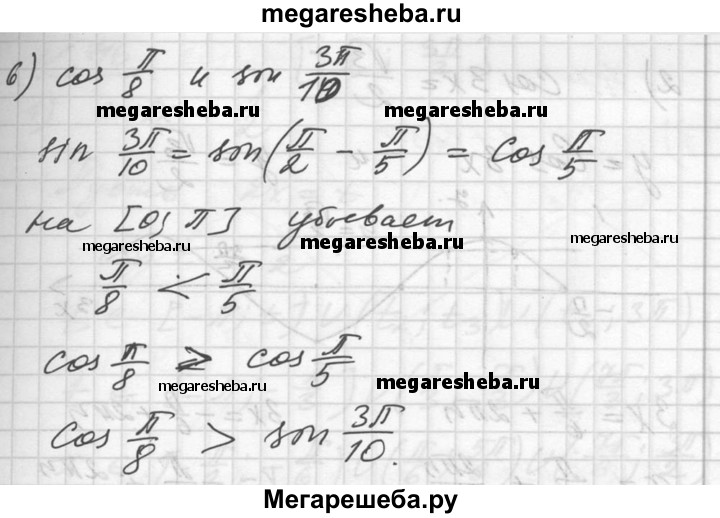 megaresheba.ru
6) cos π/8 и sin 3π/10
megaresheba.ru megaresheba.ru
sin 3π/10 = sin(π/2 − π/5) = cos π/5
на [0; π] убывает
megaresheba.ru megaresheba.ru megaresheba.ru
π/8 < π/5
cos π/8 > cos π/5
megaresheba.ru megaresheba.ru
cos π/8 > sin 3π/10.
Мегарешеба.ру